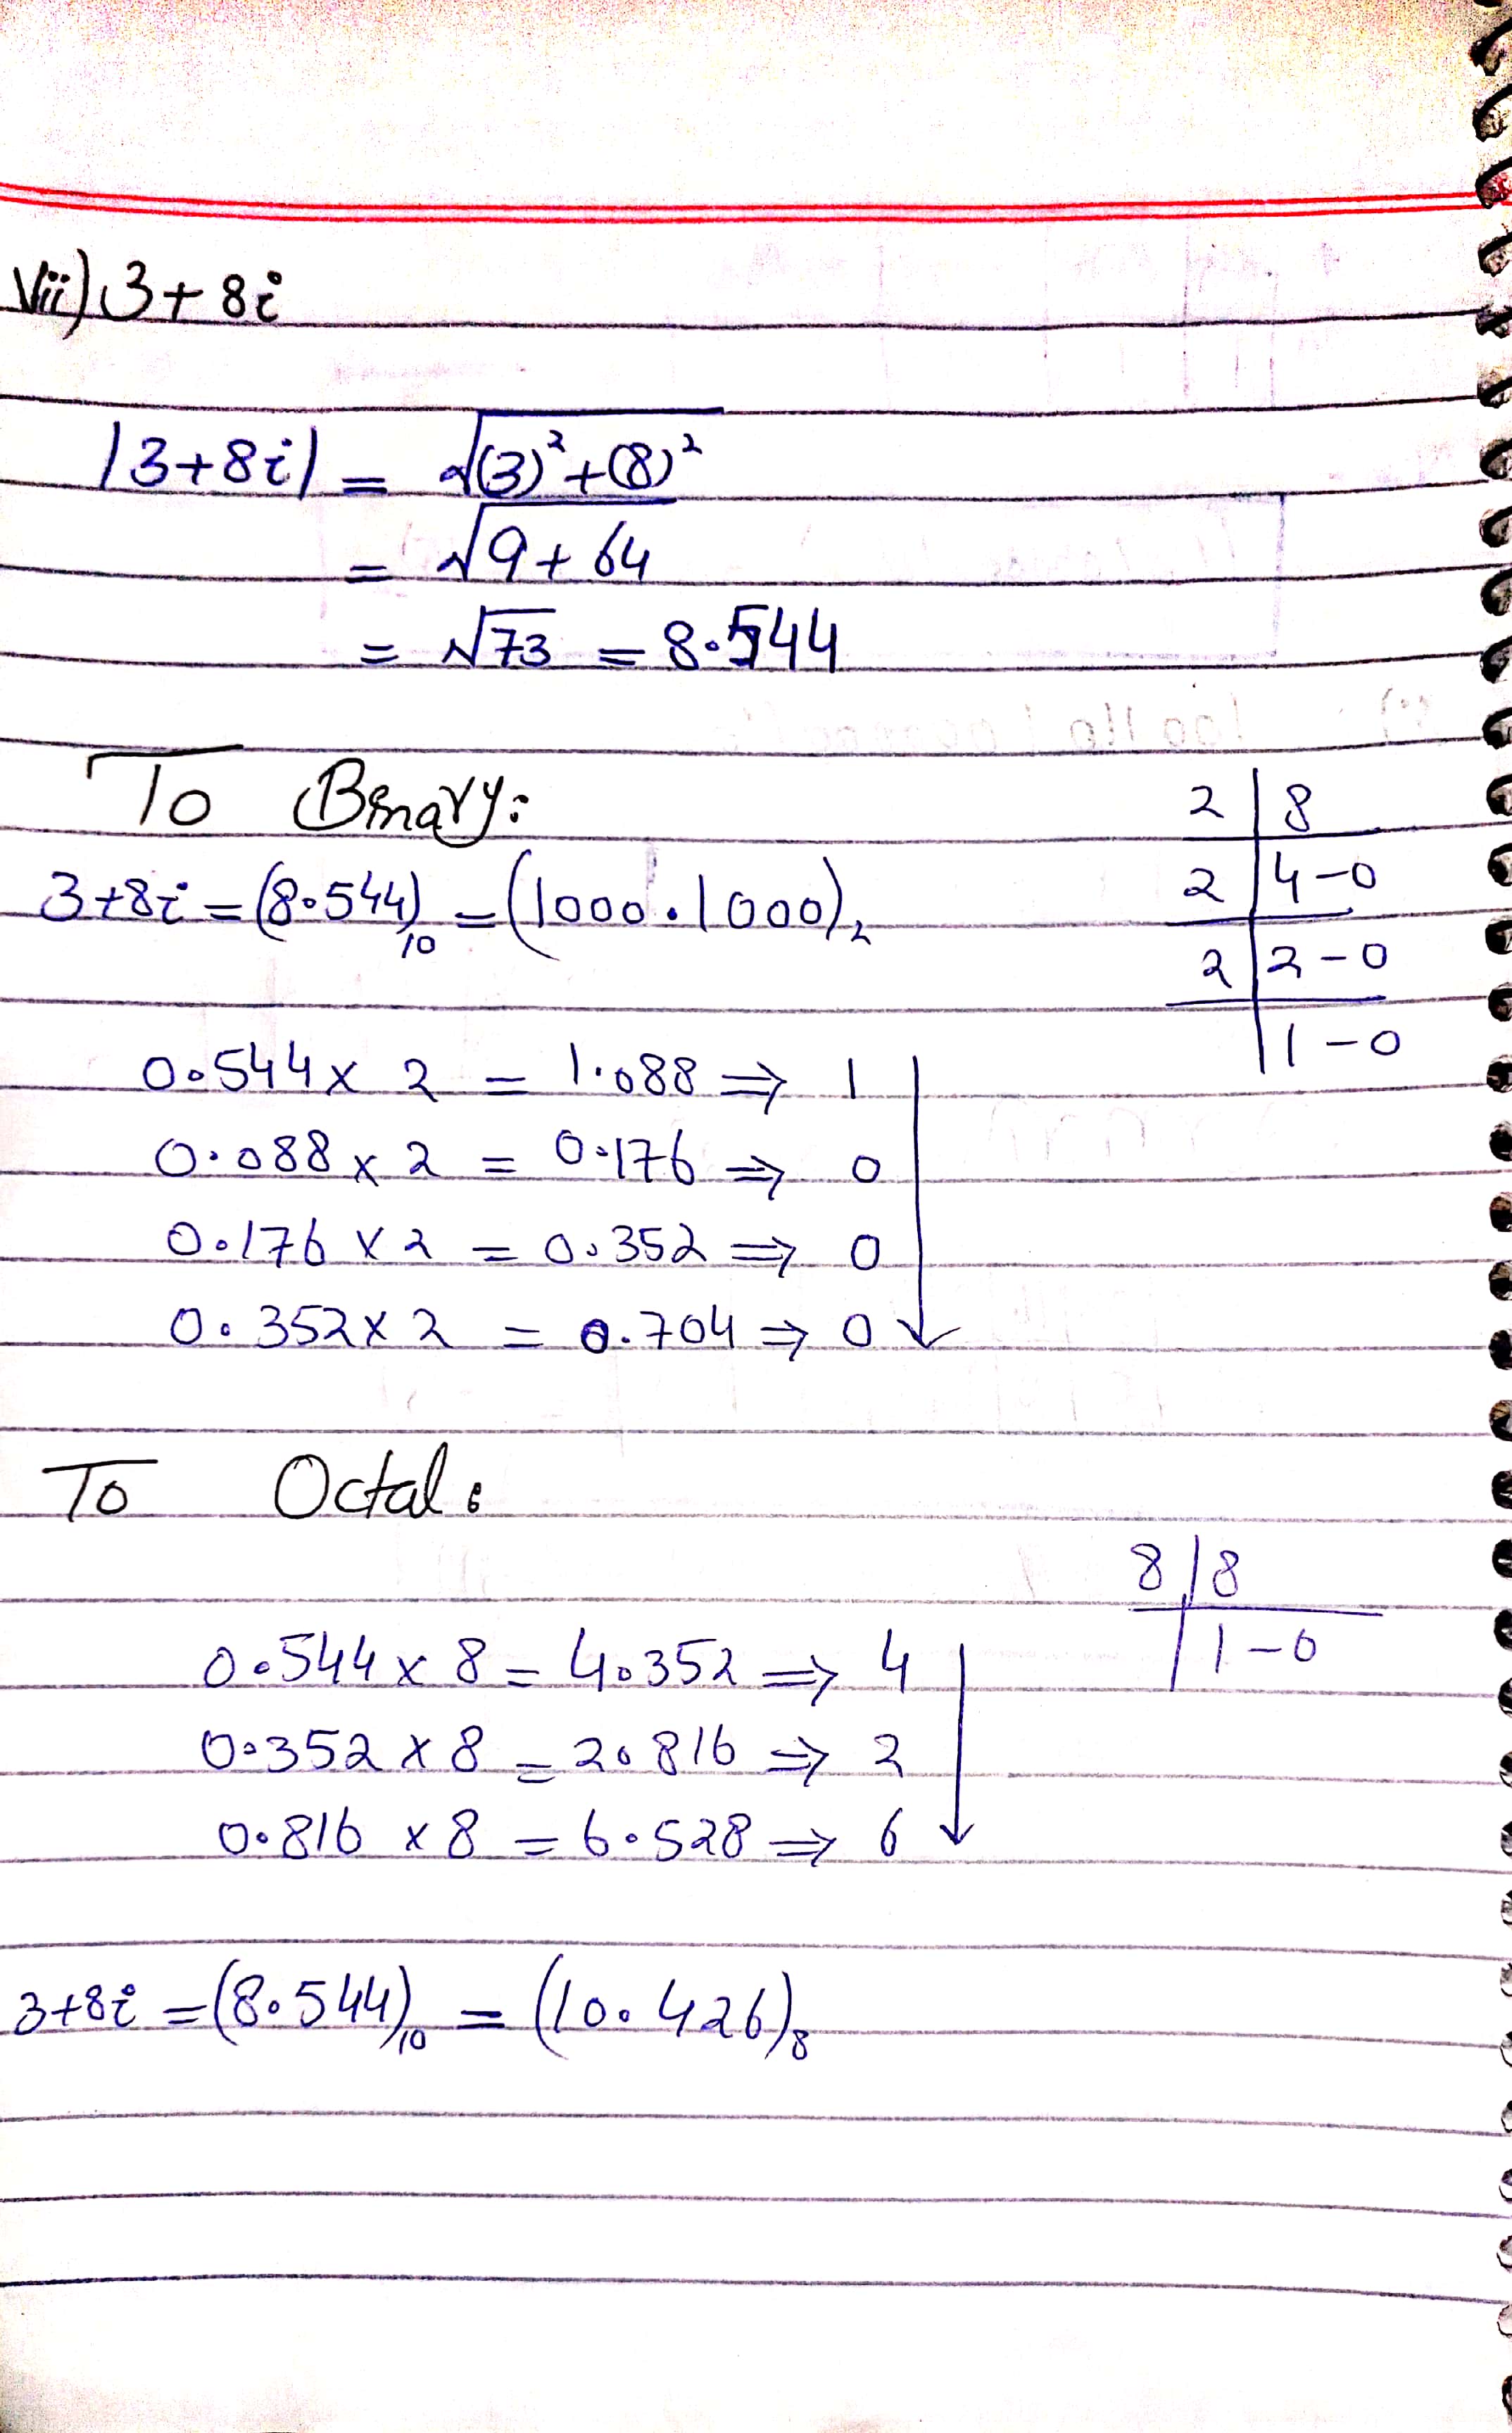 Vii) 3+8i
|3+8i| = √(3)²+(8)²
= √9+64
= √73 = 8.544
To Binary:
3+8i = (8.544)₁₀ = (1000.1000)₂
2 | 8
2 | 4-0
2 | 2-0
| 1-0
0.544 x 2 = 1.088 ⇒ 1
0.088 x 2 = 0.176 ⇒ 0
0.176 x 2 = 0.352 ⇒ 0
0.352 x 2 = 0.704 ⇒ 0
To Octal:
8 | 8
| 1-0
0.544 x 8 = 4.352 ⇒ 4
0.352 x 8 = 2.816 ⇒ 2
0.816 x 8 = 6.528 ⇒ 6
3+8i = (8.544)₁₀ = (10.426)₈